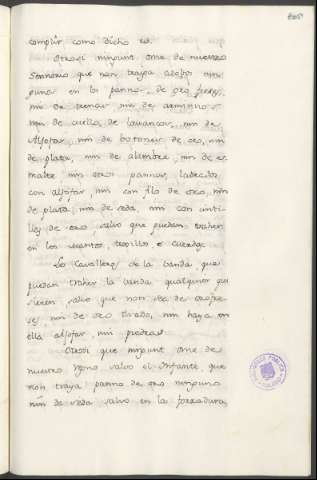 complir como dicho es.
Otrosi ninguno ome de nuestro
Sennorio que non traya adobos nin
punas en los pannos, de oro
nin de trenas nin de armiños
nin de cuello de lavancos, nin de
Aljofar, nin de botones de oro, nin
de plata, nin de alambre, nin de es
malte nin otros pannos, labrados
con aljofar, nin con filo de oro, nin
de plata, nin de seda, nin con
de oro, salvo que puedan traher
en los mantos, texillos o cuerda.
Los Cavalleros de la banda que
puedan traher la banda qualquier que
quisieren salvo que non sea de orofre
ses, nin de oro tirado, nin haya en
ella aljofar, nin piedras
Otrosi que ninguno ome de
nuestro regno salvo el Infante, que
non traya panno de oro ninguno
nin de seda salvo en la forradura,